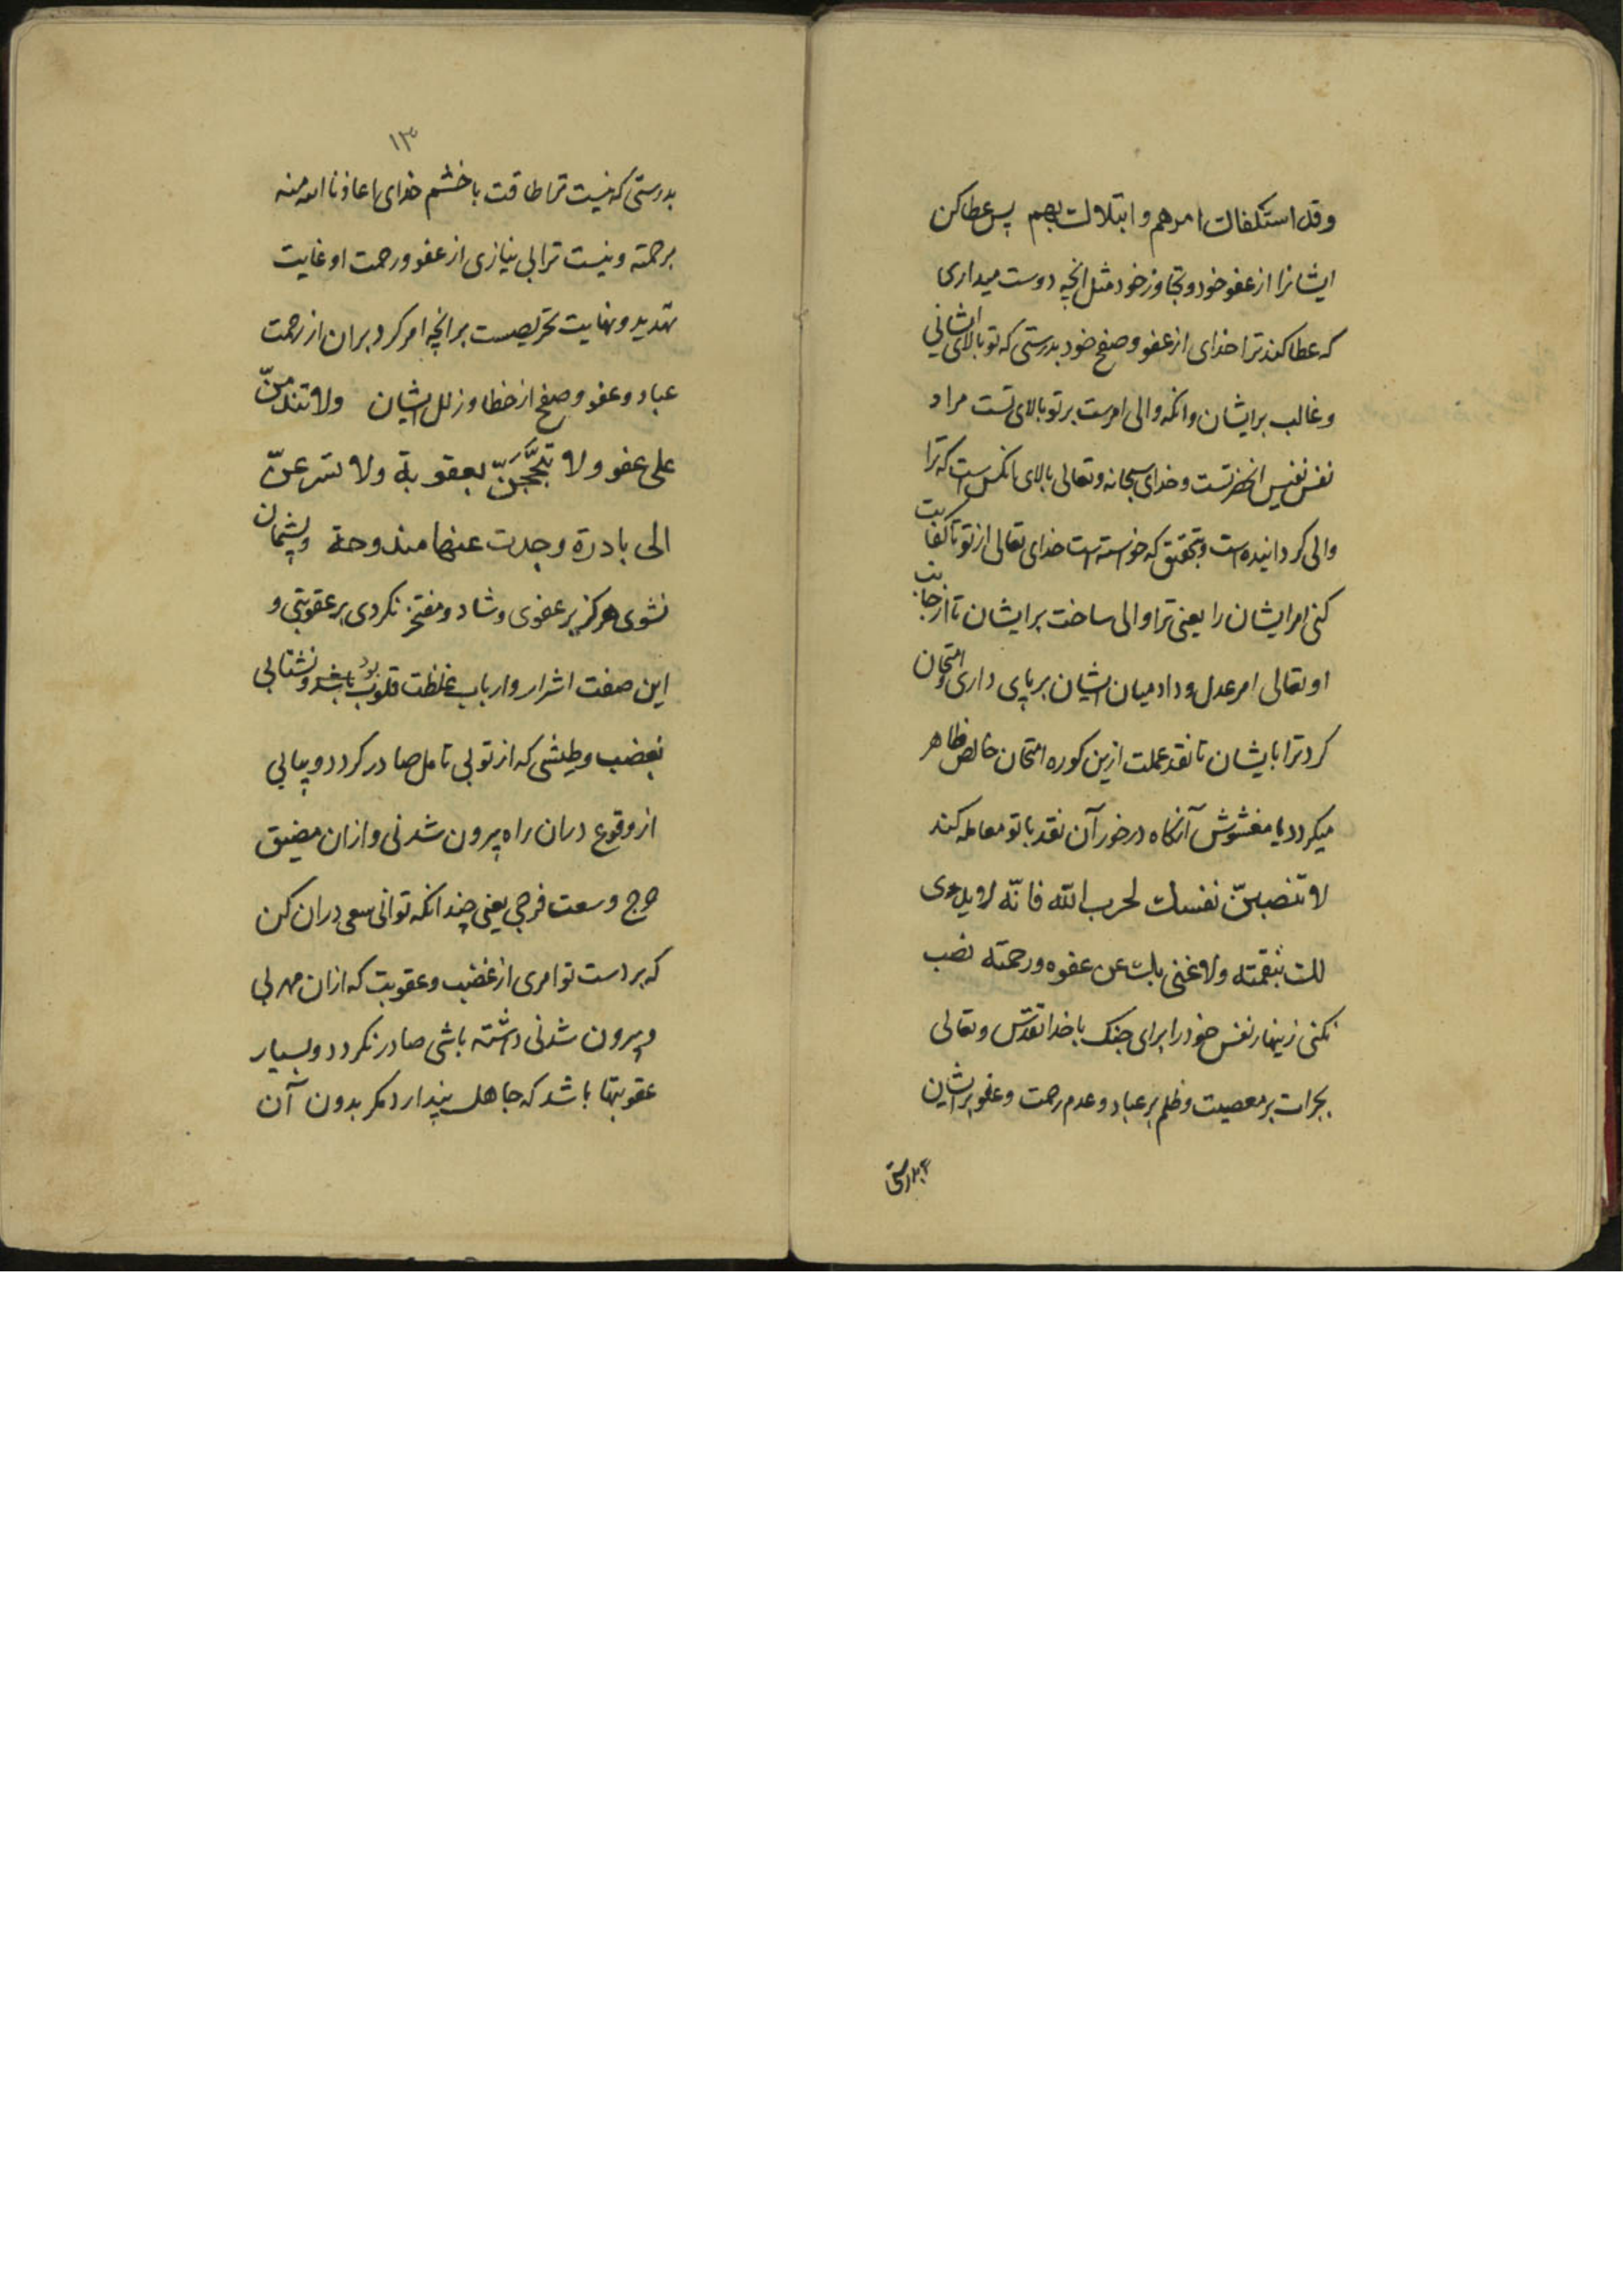 وقد استکفاک امرهم وابتلاک بهم پس عطا کن
ایشانرا از عفو خود و تجاوز خود مثل انچه دوست میداری
که عطا کند ترا خدای از عفو و صفح خود بدرستی که تو بالای ایشانی
و غالب برایشان وانکه والی امرست بر تو بالای تست مراد
نفس نفیس انحضرتست و خدای سبحانه و تعالی بالای انکس است که ترا
والی کردانیده است و بتحقیق که خواسته است خدای تعالی از تو تا کفایت
کنی امر ایشان را یعنی ترا والی ساخت برایشان تا از جانب
او تعالی امر عدل و داد میان ایشان بر پای داری و امتحان
کرد ترا بایشان تا نقد عملت ازین کوره امتحان خالص ظاهر
میکردد یا مغشوش آنکاه درخور آن نقد با تو معامله کند
لا تنصبنّ نفسک لحرب اللّه فانّه لا یدی
لک بنقمته ولا غنی بک عن عفوه ورحمته نصب
نکنی زینهار نفس خود را برای جنک با خدا تقدّس و تعالی
بجرات بر معصیت و ظلم بر عباد و عدم رحمت و عفو برایشان
بدرستی
۱۳
بدرستی که نیست ترا طاقت با خشم خدای اعاذنا الله منه
برحمته و نیست ترا بی نیازی از عفو و رحمت او غایت
تهدید و نهایت تحریصست بر انچه امر کرد بران از رحمت
عباد و عفو و صفح از خطا و زلل ایشان ولا تندمنّ
علی عفو ولا تبجّحنّ بعقوبة ولا تسرعنّ
الی بادرة وجدت عنها مندوحة و پشیمان
نشوی هرکز بر عفوی و شاد و مفتخر نکردی بر عقوبتی و
این صفت اشرار و ارباب غلظت قلوب بود باشد و نشتابی
بغضب و طیشی که از تو بی تامل صادر کردد و بیابی
از وقوع دران راه بیرون شدنی و ازان مضیق
حرج وسعت فرجی یعنی چندانکه توانی سعی دران کن
که بر دست تو امری از غضب و عقوبت که ازان مهربی
و بیرون شدنی داشته باشی صادر نکردد و بسیار
عقوبتها باشد که جاهل پندارد مکر بدون آن